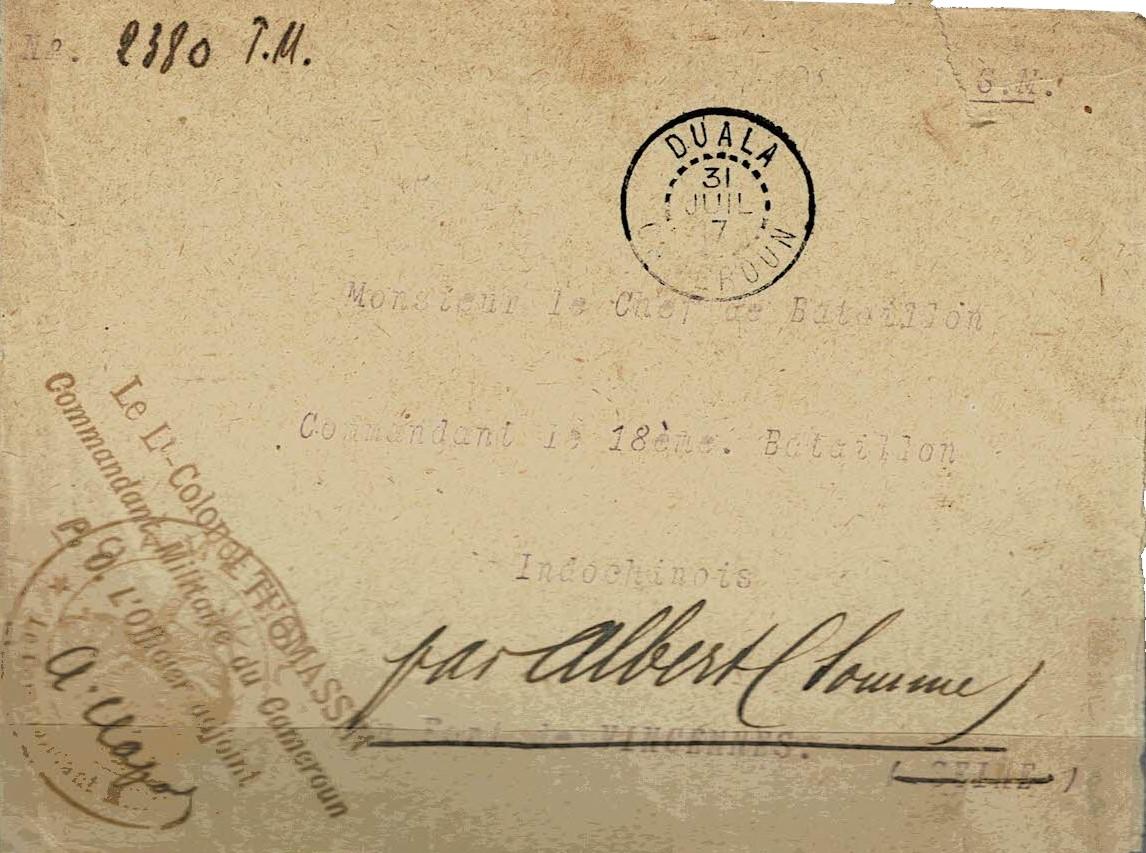 No. 2380 T.M.
S.M.
DUALA
31
JUIL
17
CAMEROUN
Monsieur le Chef de Bataillon
Commandant le 18ème. Bataillon
Indochinois
par Albert (Somme)
Fort de VINCENNES.
( SEINE )
Le Lt-Colonel THOMASSIN
Commandant Militaire du Cameroun
P. O. L'Officier adjoint